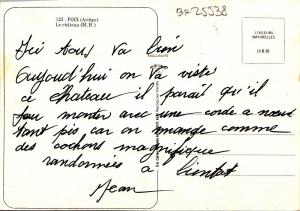 125 - FOIX (Ariège)
Le château (M. H.)
BR25538
COULEURS
NATURELLES
Ici tous va bien
aujourd'hui on va visite
ce chateau il parait qu'il
fau monter avec une corde a nœus
tant pis, car on mange comme
des cochons magnifique
randonnées à bientot
Jean